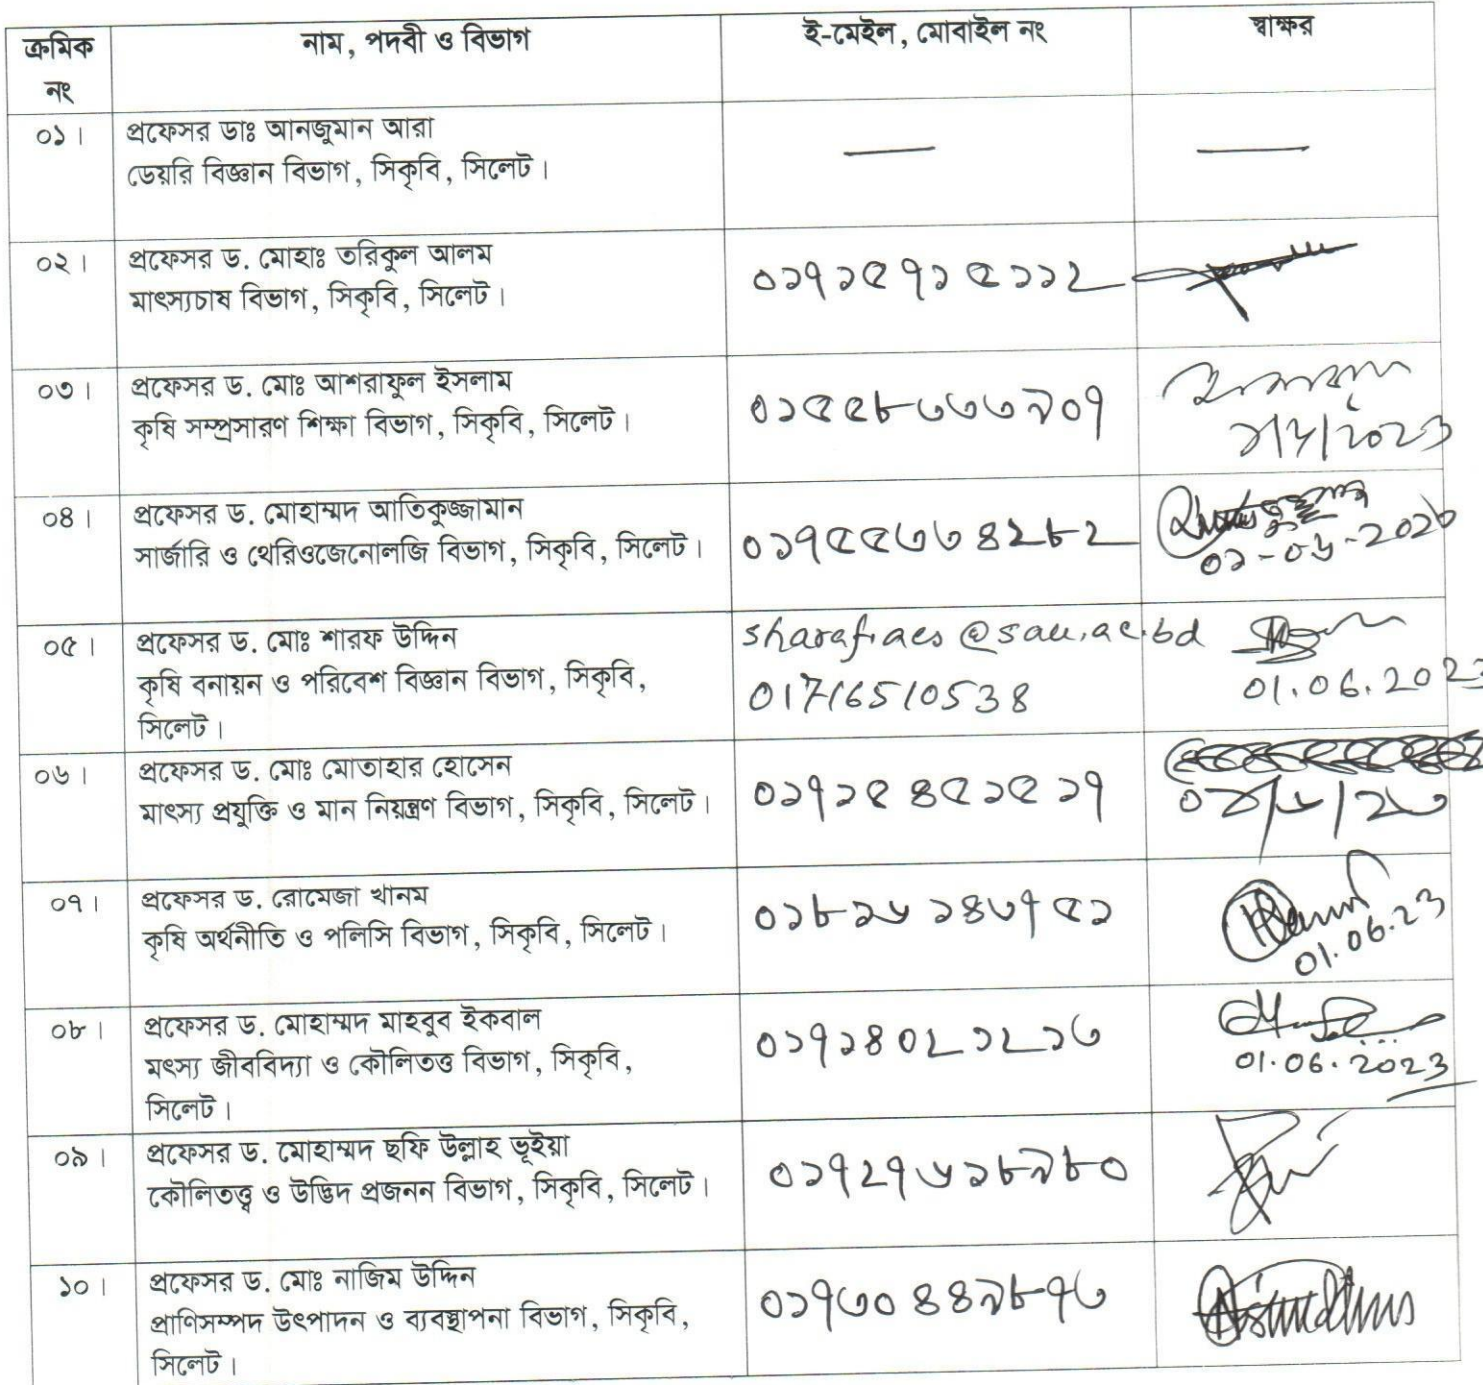 ক্রমিক নং	নাম, পদবী ও বিভাগ	ই-মেইল, মোবাইল নং	স্বাক্ষর
০১। প্রফেসর ডাঃ আনজুমান আরা
ডেয়রি বিজ্ঞান বিভাগ, সিকৃবি, সিলেট।
০২। প্রফেসর ড. মোহাঃ তরিকুল আলম
মাৎস্যচাষ বিভাগ, সিকৃবি, সিলেট।
০১৭১৫৭১৫১১২
০৩। প্রফেসর ড. মোঃ আশরাফুল ইসলাম
কৃষি সম্প্রসারণ শিক্ষা বিভাগ, সিকৃবি, সিলেট।
০১৫৫৮৩৩৩৯০৭
০৪। প্রফেসর ড. মোহাম্মদ আতিকুজ্জামান
সার্জারি ও থেরিওজেনোলজি বিভাগ, সিকৃবি, সিলেট।
০১৭৫৫৩৩৪২৮২
০১-০৬-২০২৩
০৫। প্রফেসর ড. মোঃ শারফ উদ্দিন
কৃষি বনায়ন ও পরিবেশ বিজ্ঞান বিভাগ, সিকৃবি,
সিলেট।
sharaf.aes@sau.ac.bd
01716510538
01.06.2023
০৬। প্রফেসর ড. মোঃ মোতাহার হোসেন
মাৎস্য প্রযুক্তি ও মান নিয়ন্ত্রণ বিভাগ, সিকৃবি, সিলেট।
০১৭১৫৪৫১৫১৭
০৭। প্রফেসর ড. রোমেজা খানম
কৃষি অর্থনীতি ও পলিসি বিভাগ, সিকৃবি, সিলেট।
01.06.23
০৮। প্রফেসর ড. মোহাম্মদ মাহবুব ইকবাল
মৎস্য জীববিদ্যা ও কৌলিতত্ত বিভাগ, সিকৃবি,
সিলেট।
০১৭১৪০২১২১৩
01.06.2023
০৯। প্রফেসর ড. মোহাম্মদ ছফি উল্লাহ ভূইয়া
কৌলিতত্ত্ব ও উদ্ভিদ প্রজনন বিভাগ, সিকৃবি, সিলেট।
০১৭২৭৬১৮৯৮০
১০। প্রফেসর ড. মোঃ নাজিম উদ্দিন
প্রাণিসম্পদ উৎপাদন ও ব্যবস্থাপনা বিভাগ, সিকৃবি,
সিলেট।
০১৭৩০৪৪৯৮৭৩